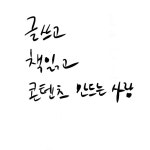 글쓰고
책읽고
콘텐츠 만드는 사람